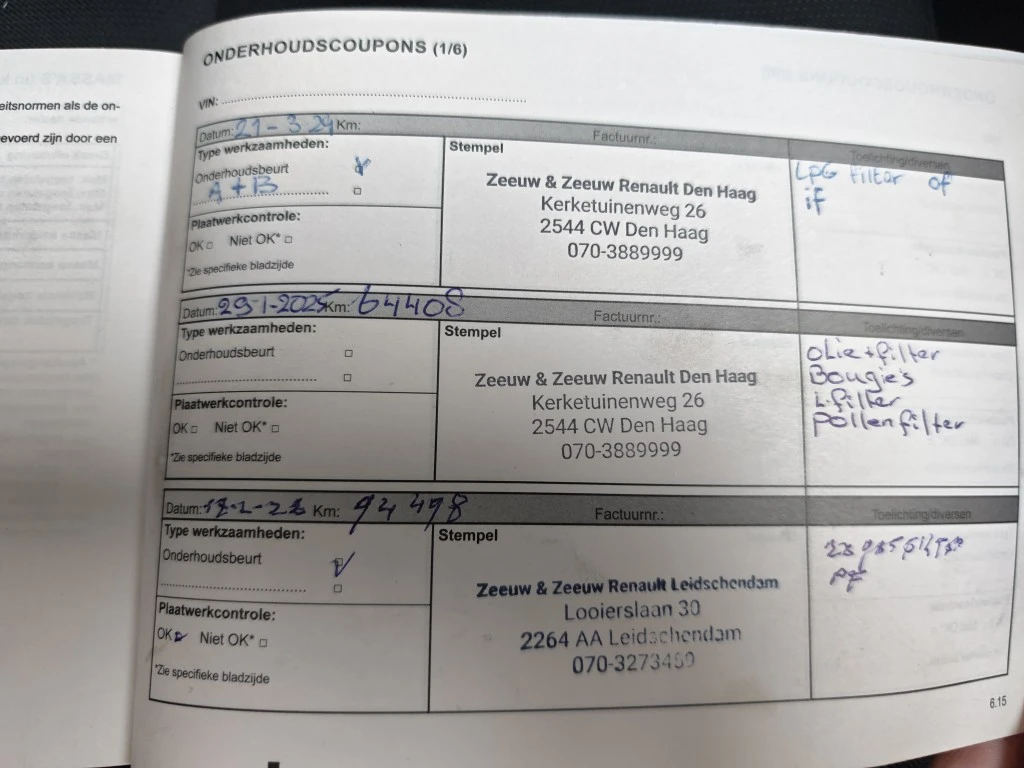 eitsnormen als de on-
evoerd zijn door een
ONDERHOUDSCOUPONS (1/6)
VIN:
Datum: 21-3-24 Km: Factuurnr.: Toelichting/diversen
Type werkzaamheden:
Onderhoudsbeurt
A + B
Plaatwerkcontrole:
OK Niet OK*
*Zie specifieke bladzijde
Stempel
Zeeuw & Zeeuw Renault Den Haag
Kerketuinenweg 26
2544 CW Den Haag
070-3889999
LPG filter of
if
Datum: 29-1-2025 Km: 64408 Factuurnr.: Toelichting/diversen
Type werkzaamheden:
Onderhoudsbeurt
Plaatwerkcontrole:
OK Niet OK*
*Zie specifieke bladzijde
Stempel
Zeeuw & Zeeuw Renault Den Haag
Kerketuinenweg 26
2544 CW Den Haag
070-3889999
olie+filter
Bougie's
L.filter
pollenfilter
Datum: Km: 94 498 Factuurnr.: Toelichting/diversen
Type werkzaamheden:
Onderhoudsbeurt
Plaatwerkcontrole:
OK Niet OK*
*Zie specifieke bladzijde
Stempel
Zeeuw & Zeeuw Renault Leidschendam
Looierslaan 30
2264 AA Leidschendam
070-3273469
6.15